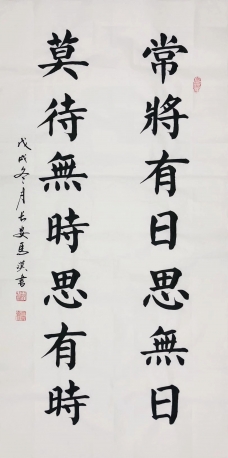 常將有日思無日
莫待無時思有時
戊戌冬月長安馬漢書